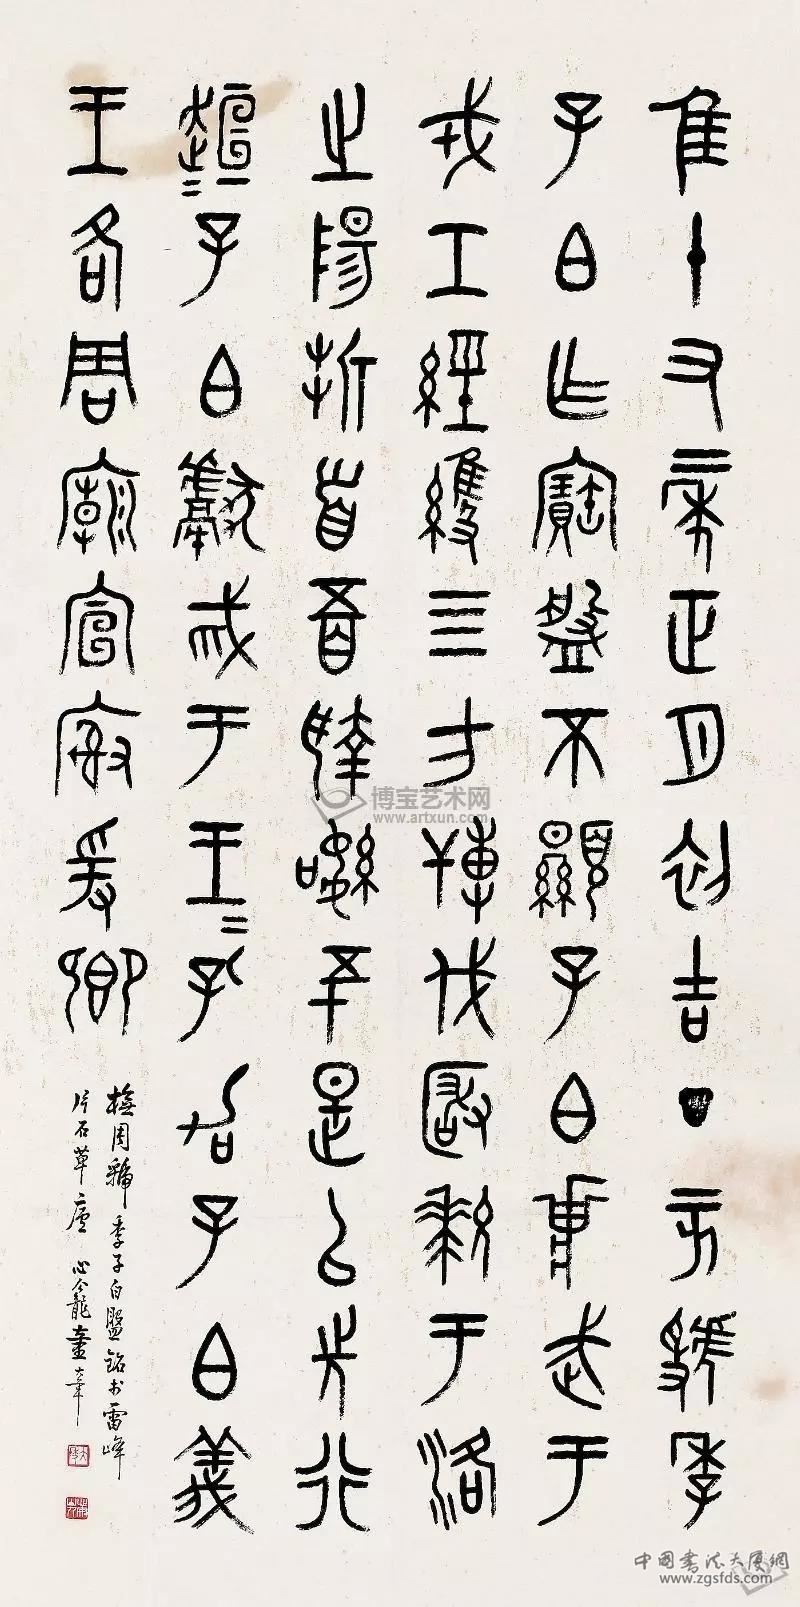 隹十又二年正月初吉丁亥虢季
子白乍寶盤不顯子白壯武于
戎工經維亖方搏伐玁狁于洛
之陽折首五百執訊五十是以先行
趄=子白獻馘于王=孔加子白義
王各周廟宣榭爰卿
橅周虢季子白盤銘於雷峰
片石草廬 心龕童大年
博宝艺术网
www.artxun.com
中国書法大厦網
www.zgsfds.com